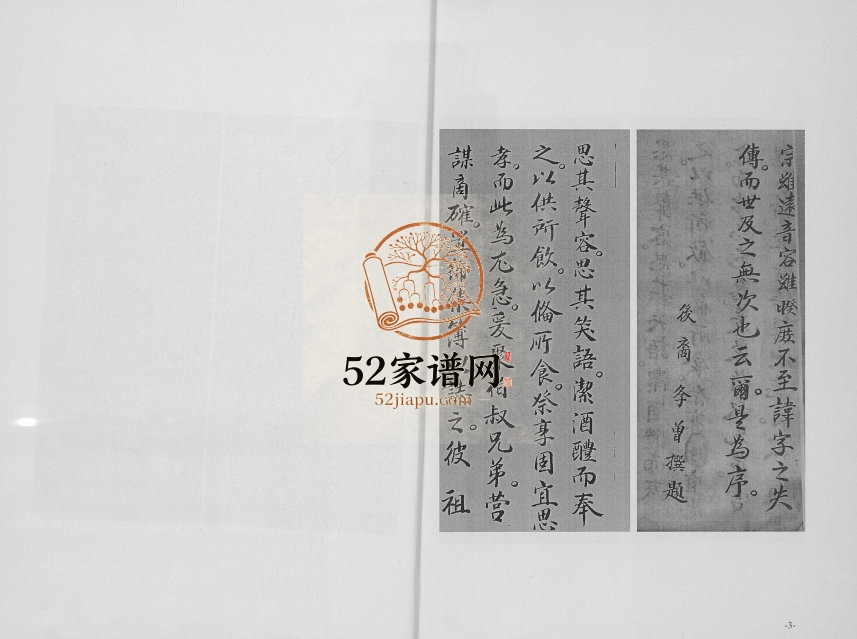 思其聲容。思其笑語。潔酒醴而奉
之。以供所飲。以俻所食。祭享固宜思
孝。而此為尤急。爰聚伯叔兄弟。營
謀商確。之。彼祖
宗雖遠音容雖暌庶不至諱字之失
傳。而世及之無次也云爾。是為序。
後裔李曾撰題
52家谱网
52jiapu.com
-3-